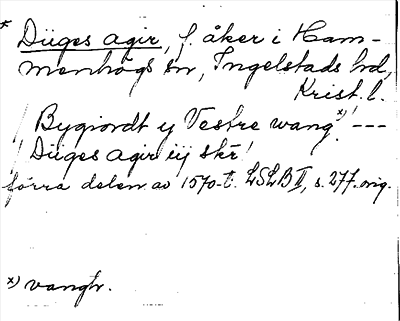 * Düges agir, f. åker i Ham-
menhögs sn, Ingelstads hd,
Krist. l.
"Bygiordt y Vestre wang x) ---
Düges agir iij skr"
förra delen av 1570-t. LSLB II, s. 277. orig.
x) vangr.